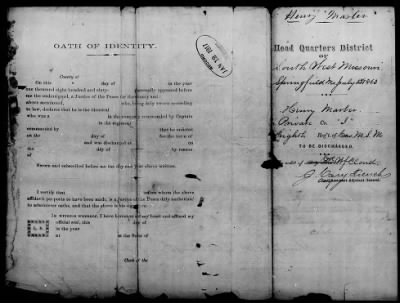 OATH OF IDENTITY.
of
County of
On this day of in the year
one thousand eight hundred and sixty- personally appeared before
me the undersigned, a Justice of the Peace for the county and
above mentioned, who, being duly sworn according
to law, declares that he is the identical
who was a in the company commanded by Captain
in the regiment
commanded by that he enlisted
on the day of for the term of
and was discharged at on the
day of by reason of
Sworn and subscribed before me the day and year above written.
I certify that before whom the above
affidavit purports to have been made, is a Justice of the Peace duly authorized
to administer oaths, and that the above is his signature.
In witness whereof, I have hereunto set my hand and affixed my
official seal, this day of
L. S. in the year
at in the State of
Clerk of the
JAN 19 1917
Henry Marler
Head Quarters District
OF
South West Missouri
Springfield Mo July 1863
Henry Marler
Private Co "I"
Eighth Reg't of Cav M.S.M
TO BE DISCHARGED.
Assistant Adjutant General.